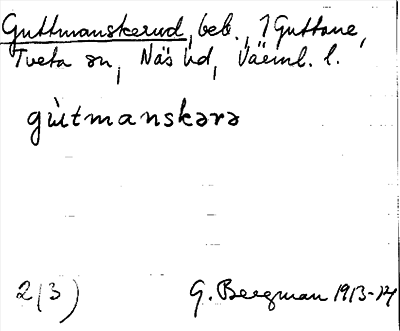 Guttmanskerud, beb., 1 Guttane,
Tveta sn, Näs hd, Värml. l.
gu̇̀tmanskərə
2(3) G. Bergman 1913-14